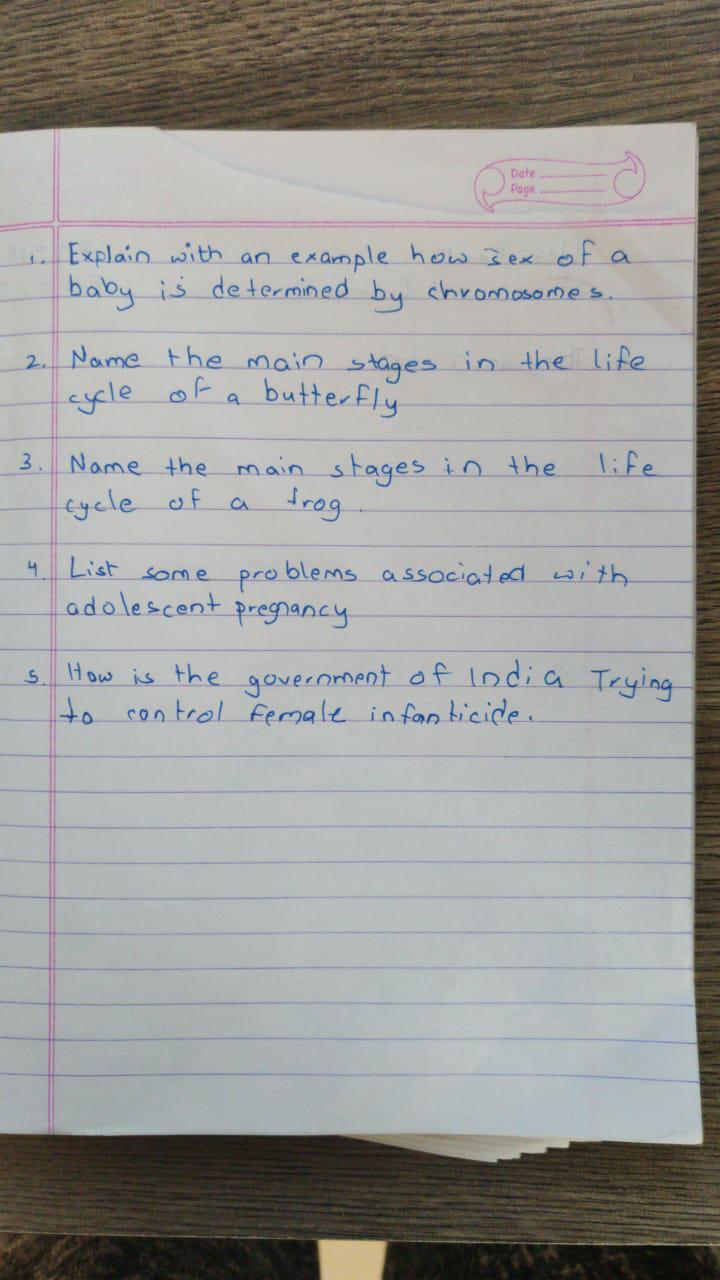 Date
Page
1. Explain with an example how sex of a
baby is determined by chromosomes.
2. Name the main stages in the life
cycle of a butterfly
3. Name the main stages in the life
cycle of a frog.
4. List some problems associated with
adolescent pregnancy
5. How is the government of India Trying
to control female infanticide.